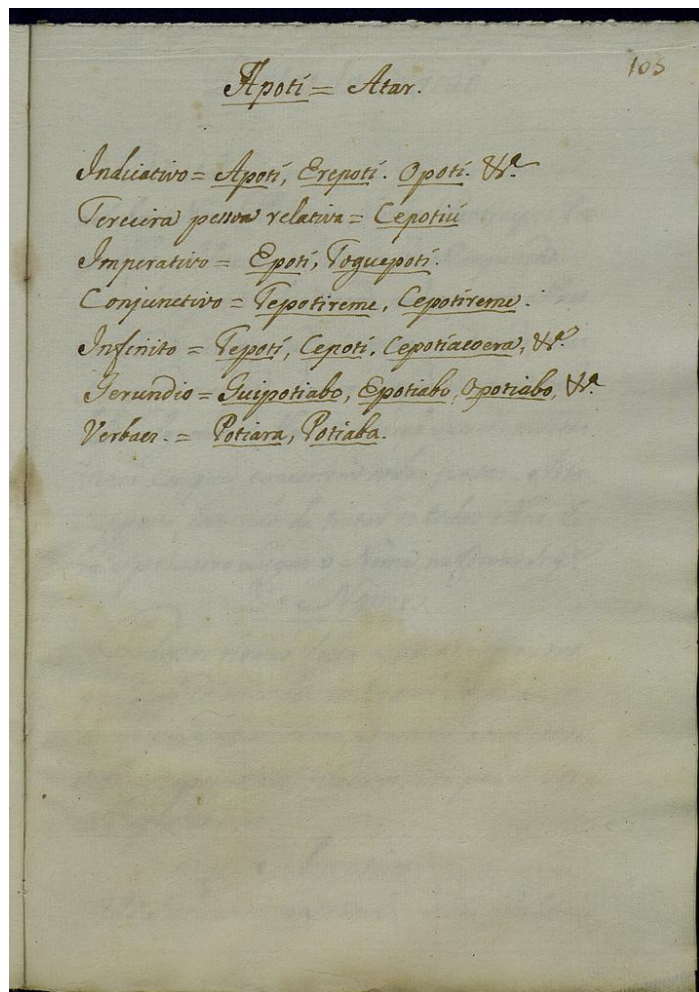 105
Apotí = Atar.
Indicativo = Apotí, Erepotí. Opotí. &ª
Terceira pessoa relativa = Cepotiú
Imperativo = Epotí, Toguepotí.
Conjunctivo = Tepotireme, Cepotíreme.
Infinito = Tepotí, Cepotí, Cepotíacoera, &ª
Gerundio = Guipotiabo, Epotiabo, Opotiabo, &ª
Verbaes. = Potiara, Potiaba.